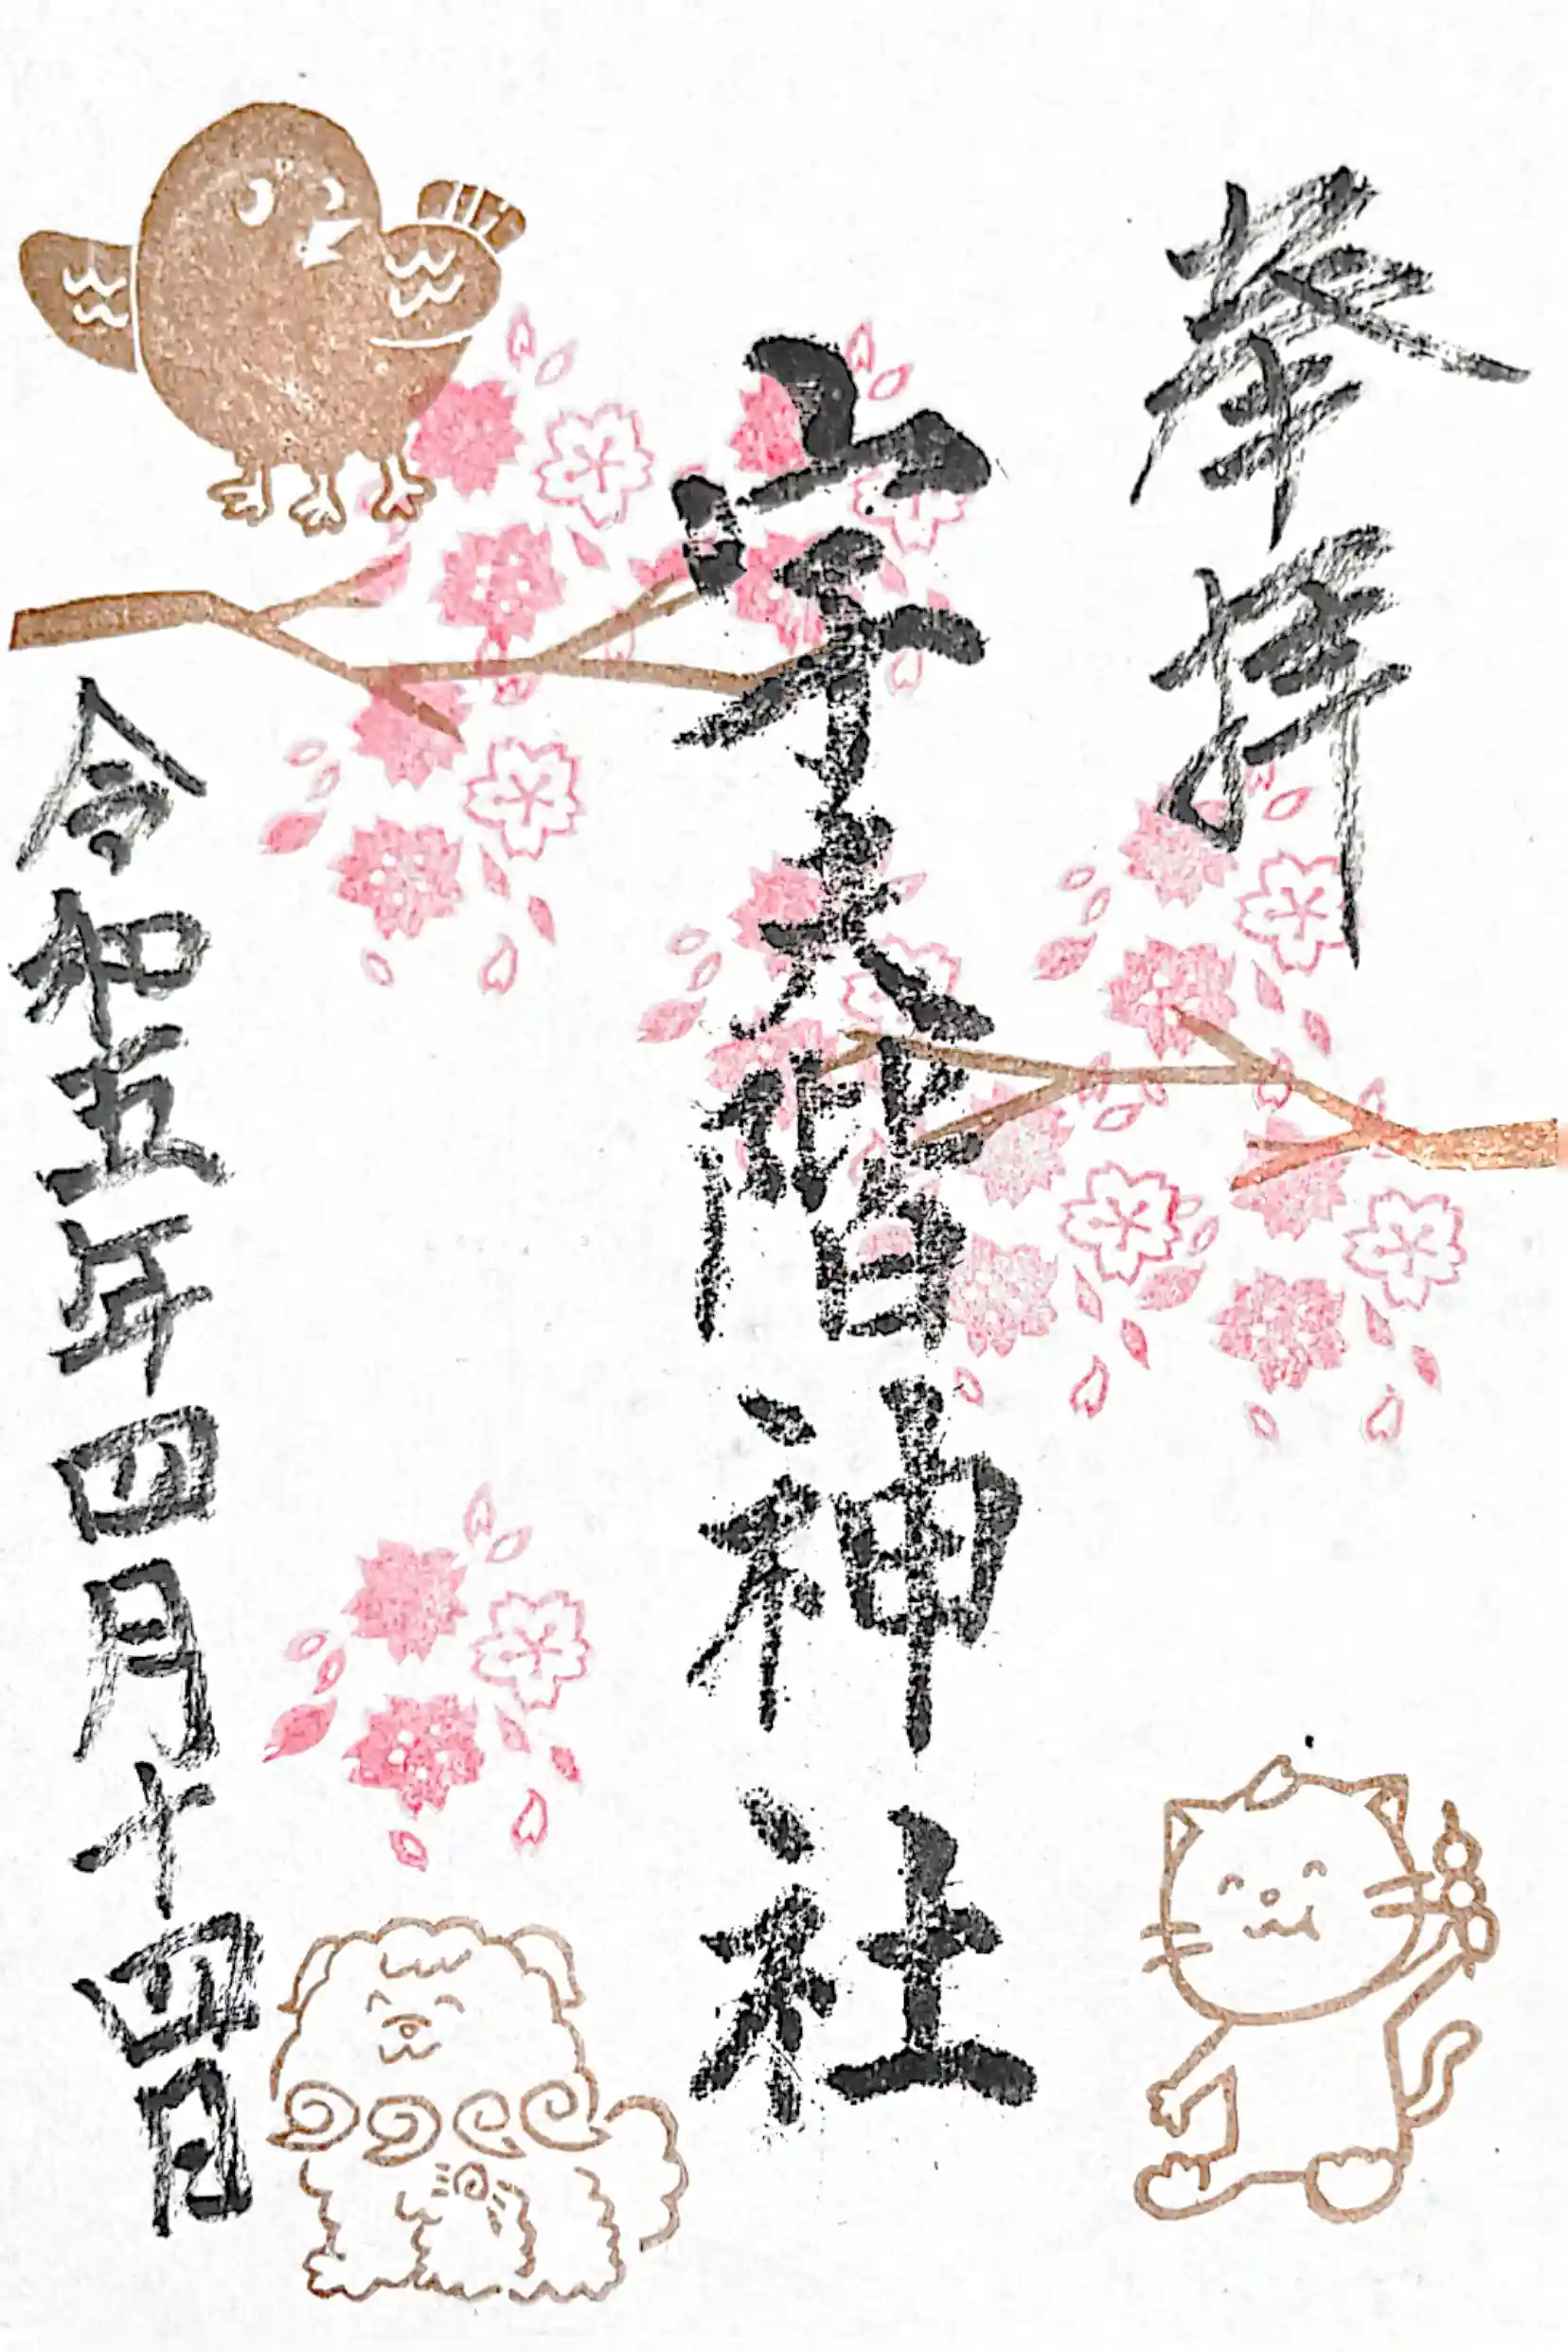 奉拝
宇夫階神社
令和五年四月十四日